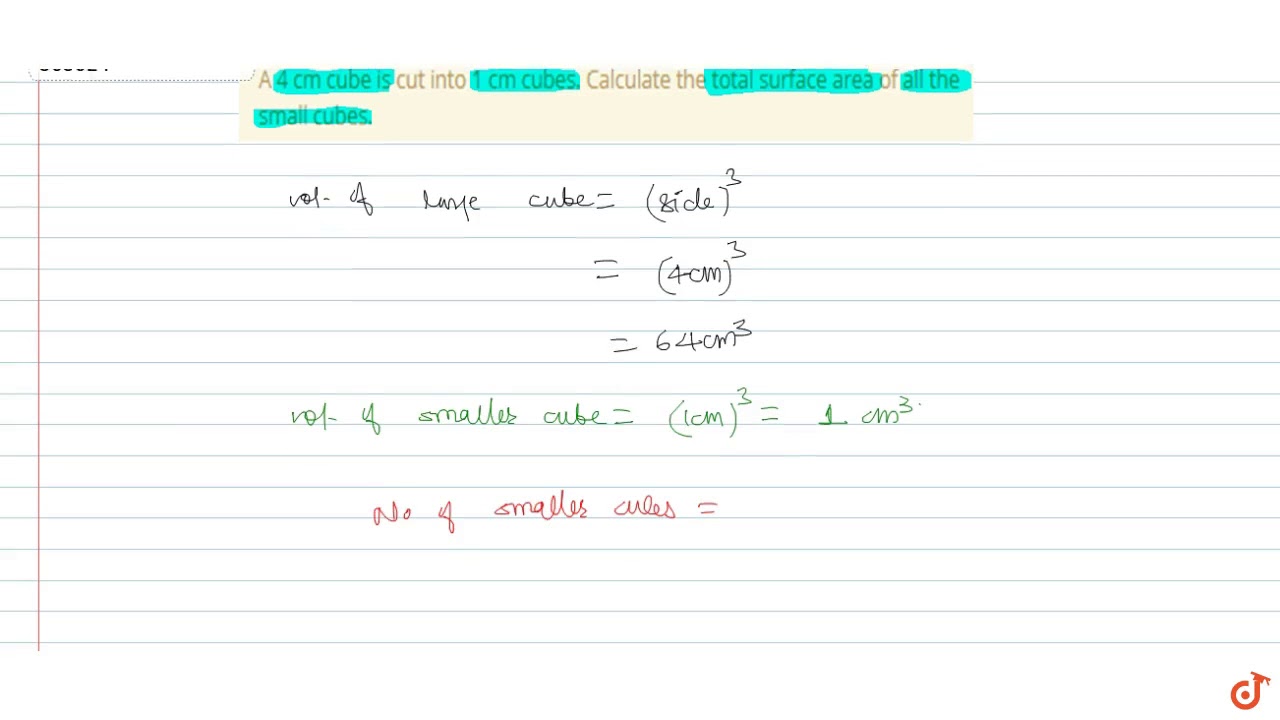 A 4 cm cube is cut into 1 cm cubes. Calculate the total surface area of all the
small cubes.
vol. of large cube = (side)³
= (4cm)³
= 64cm³
vol. of smaller cube = (1cm)³ = 1 cm³
No of smaller cubes =